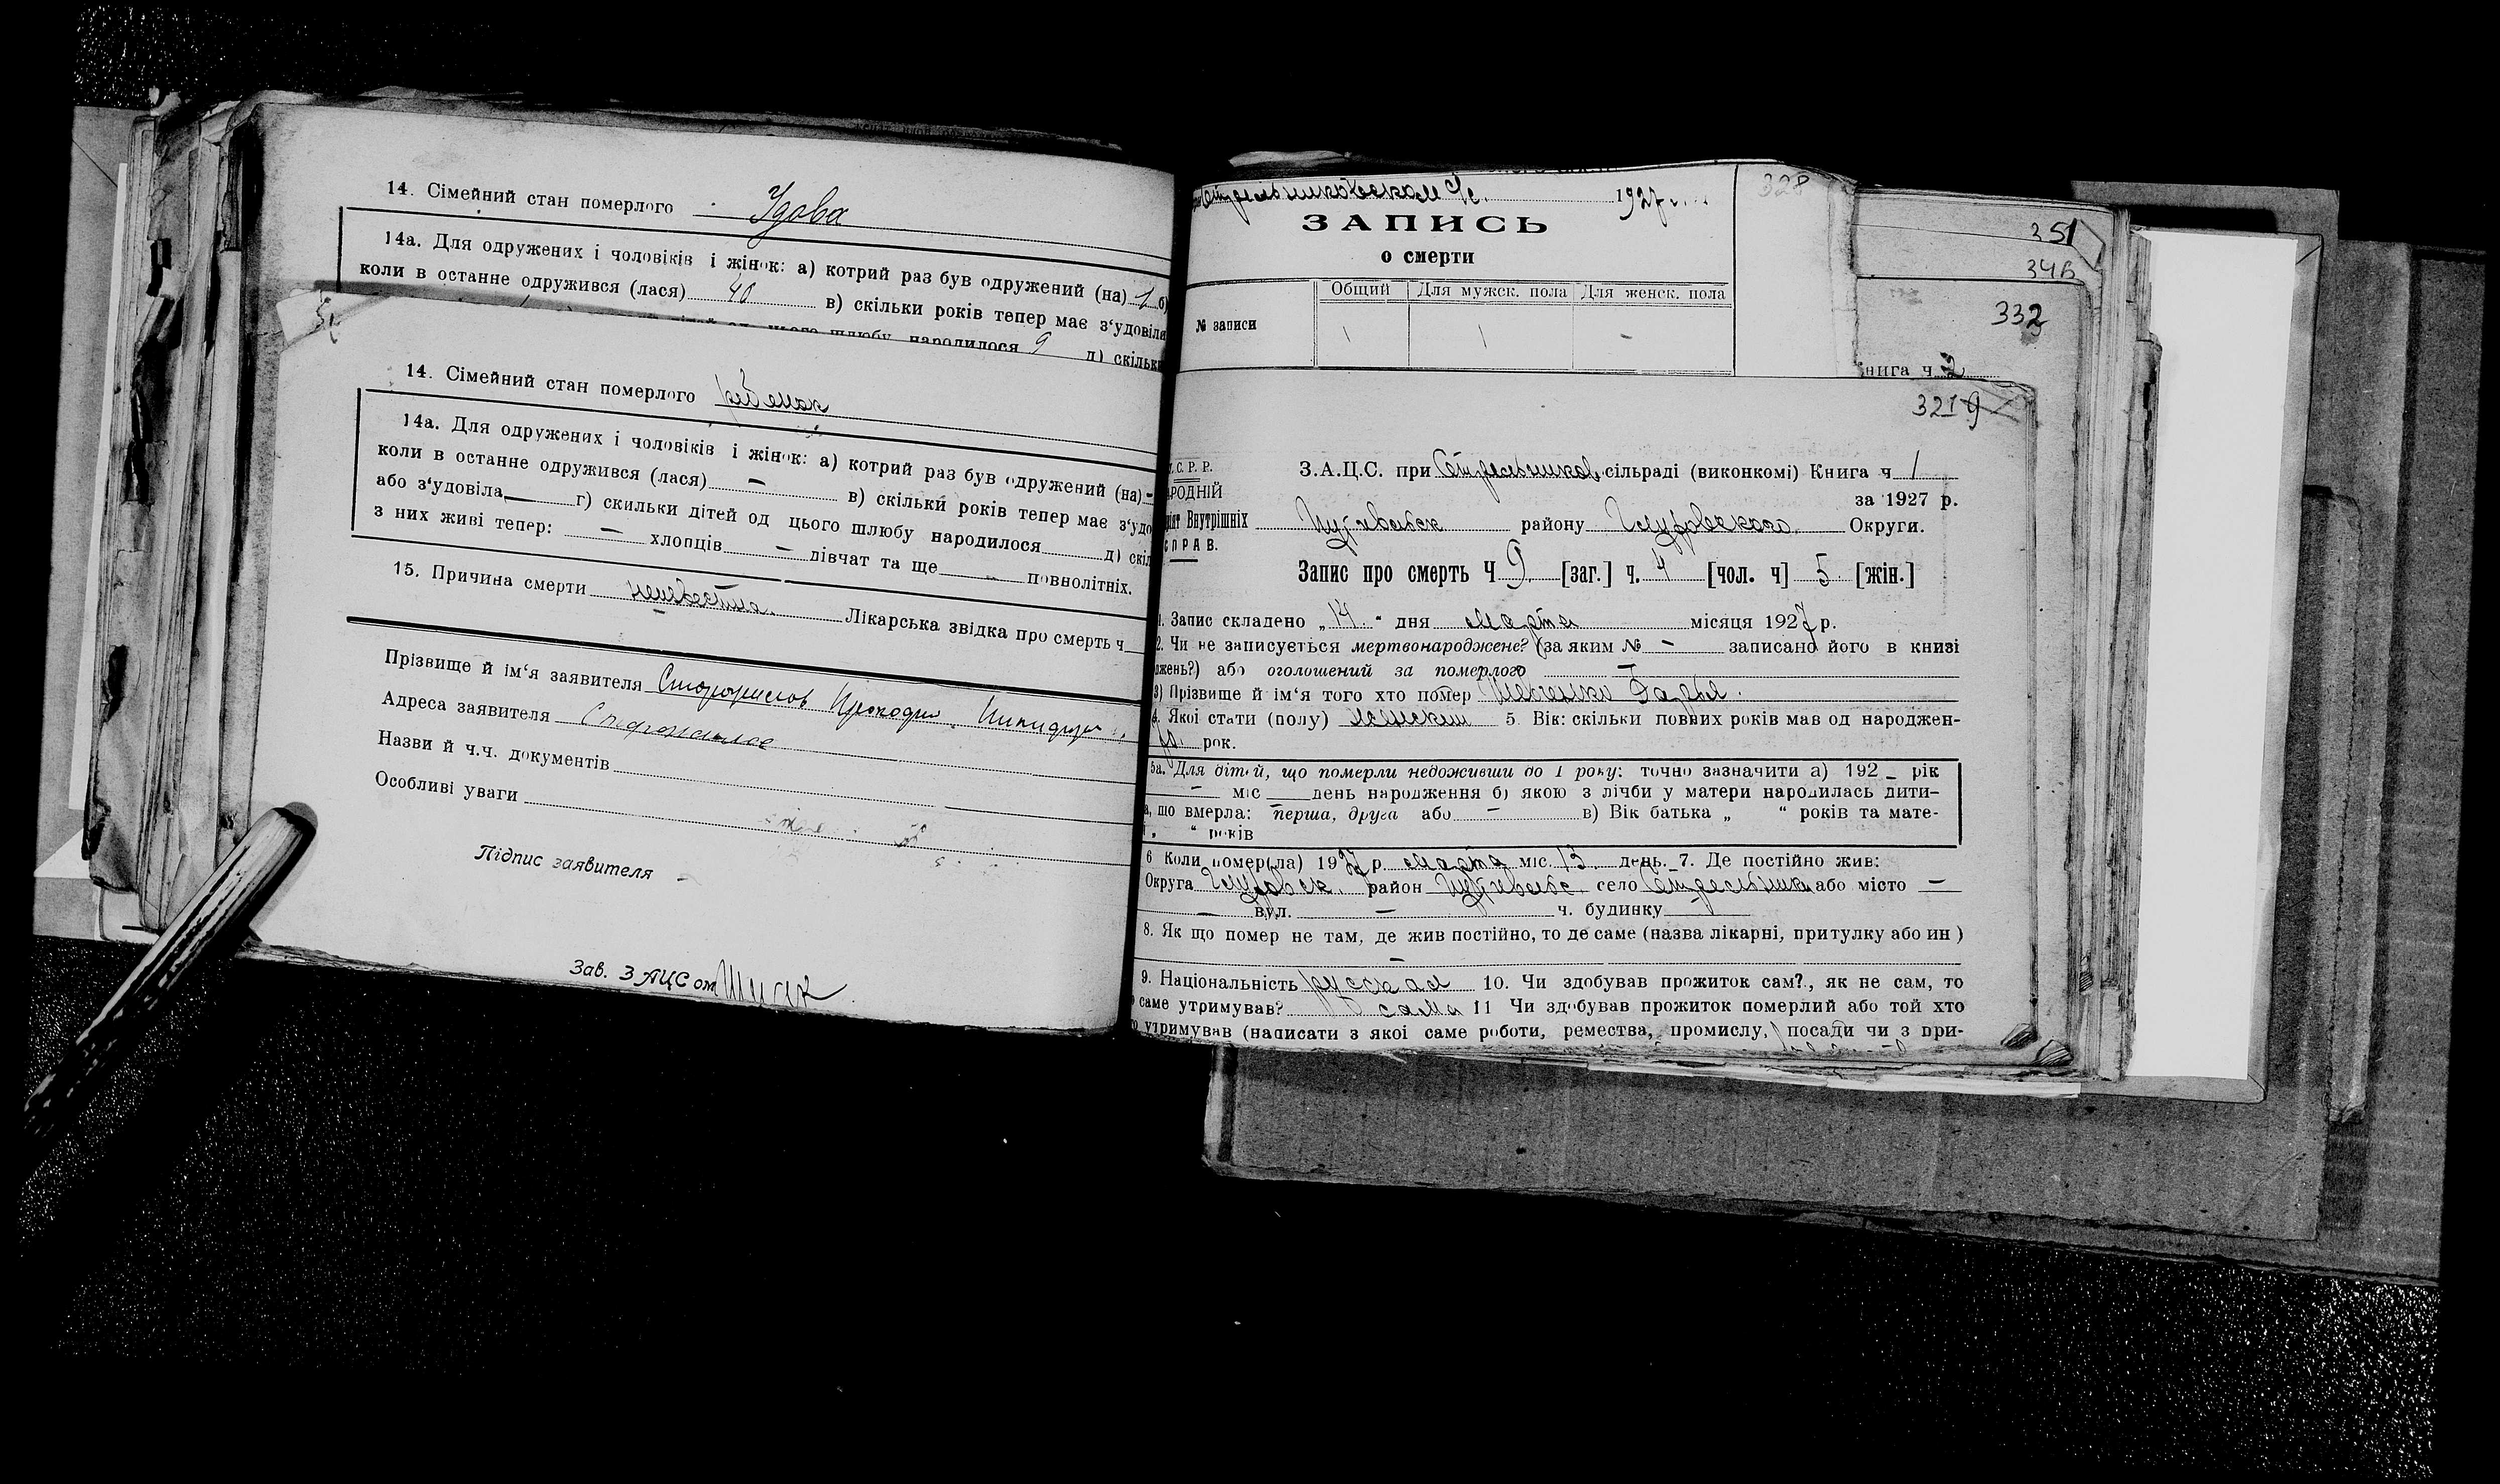 14. Сімейний стан померлого Удова
14а. Для одружених і чоловіків і жінок: а) котрий раз був одружений (на) 1 б)
коли в останне одружився (лася) 40 в) скільки років тепер має з'удовіли
шлюбу народилося 9 д) скільки
14. Сімейний стан померлого ребенок
14а. Для одружених і чоловіків і жінок: а) котрий раз був одружений (на) -
коли в останне одружився (лася) — в) скільки років тепер має з'удо
або з'удовіла — г) скильки дітей од цього шлюбу народилося д) скіл
з них живі тепер: — хлопців — дівчат та ще повнолітніх.
15. Причина смерти неизвестна. Лікарська звідка про смерть ч
Прізвище й ім'я заявителя
Адреса заявителя
Назви й ч.ч. документів
Особливі уваги
Підпис заявителя -
Зав. ЗАЦСом
Стрельниковском с/с. 1927 г.
328
ЗАПИСЬ
о смерти
Общий Для мужск. пола Для женск. пола
№ записи 1 1 -
351
346
332
нига ч 2
3219
С. Р. Р. З.А.Ц.С. при Стрельников сільраді (виконкомі) Книга ч 1
РОДНІЙ за 1927 р.
іят Внутрішніх Путивльск району Глуховского Округи.
СПРАВ.
Запис про смерть Ч 9. [заг.] ч. 4 [чол. ч] 5. [жін.]
1. Запис складено „14.“ дня марта місяця 1927 р.
2. Чи не записується мертвонароджене? (за яким № — записано його в книзі
джень?) або оголошений за померлого —
3) Прізвище й ім'я того хто помер Шевченко Дарья.
4. Якої стати (полу) женский 5. Вік: скільки повних років мав од народжен-
рок.
5а. Для дітей, що померли недоживши до 1 року: точно зазначити а) 192 _ рік
— міс день народження б) якою з лічби у матери народилась дити-
а, що вмерла: перша, друга або — в) Вік батька „ “ років та мате-
і „ “ років
6 Коли помер(ла) 1927 р. марта міс. 13. день. 7. Де постійно жив:
Округа Глуховск. район Путивльс. село Стрельники або місто —
— вул. — ч. будинку
8. Як що помер не там, де жив постійно, то де саме (назва лікарні, притулку або ин )
—
9. Національність русская 10. Чи здобував прожиток сам?, як не сам, то
саме утримував? сама 11 Чи здобував прожиток померлий або той хто
утримував (написати з якої саме роботи, ремества, промислу, посади чи з при-